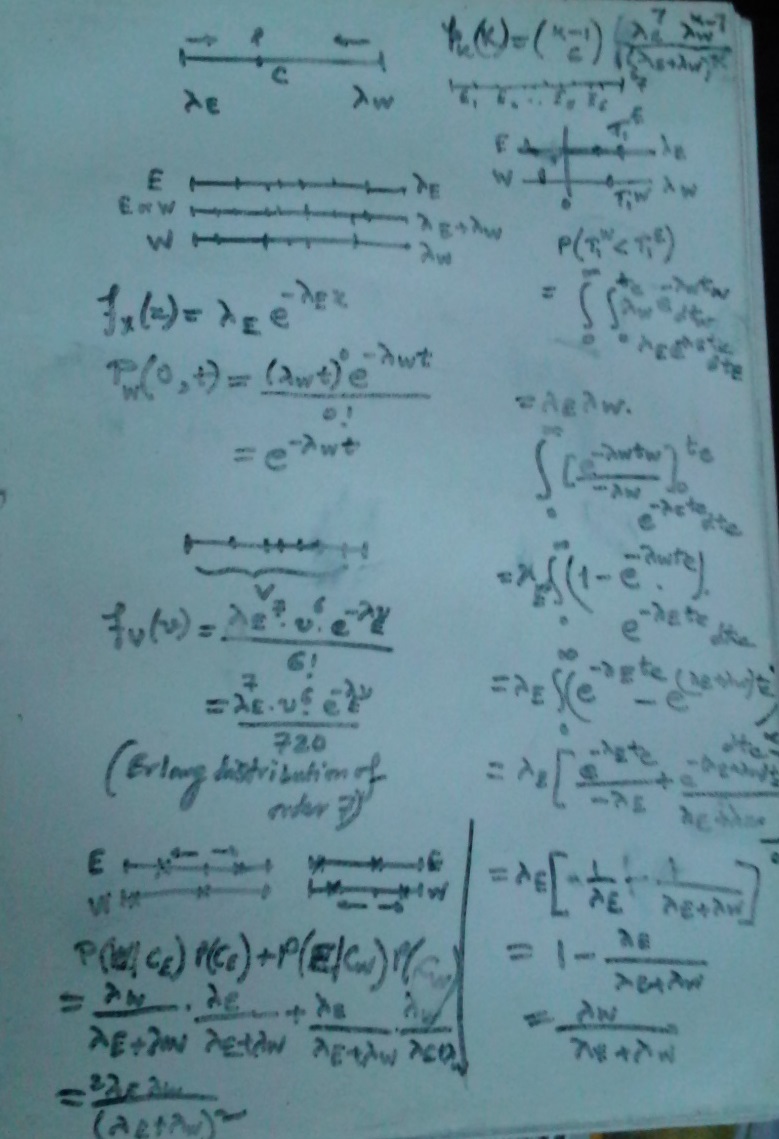 P
C
λ_E λ_W
E λ_E
E or W λ_E+λ_W
W λ_W
f_x(x) = λ_E e^{-λ_E x}
P_W(0,t) = (λ_W t)^0 e^{-λ_W t} / 0!
= e^{-λ_W t}
V
f_V(v) = λ_E^7 · v^6 · e^{-λ_E v} / 6!
= λ_E^7 · v^6 · e^{-λ_E v} / 720
(Erlang distribution of
order 7)
E E
W W
P(W|C_E) P(C_E) + P(E|C_W) P(C_W)
= λ_W/(λ_E+λ_W) · λ_E/(λ_E+λ_W) + λ_E/(λ_E+λ_W) · λ_W/(λ_E+λ_W)
= 2λ_E λ_W / (λ_E+λ_W)^2
p_k(k) = (k-1 6) λ_E^7 λ_W^{k-7} / (λ_E+λ_W)^k
E λ_E T_1^E
W λ_W T_1^W
0
P(T_1^W < T_1^E)
= ∫_0^∞ ∫_0^{t_E} λ_W e^{-λ_W t_W} dt_W
λ_E e^{-λ_E t_E} dt_E
= λ_E λ_W.
∫_0^∞ [e^{-λ_W t_W} / -λ_W]_0^{t_E}
e^{-λ_E t_E} dt_E
= λ_E ∫_0^∞ (1 - e^{-λ_W t_E}).
e^{-λ_E t_E} dt_E
= λ_E ∫_0^∞ (e^{-λ_E t_E} - e^{-(λ_E+λ_W)t_E})
dt_E
= λ_E [e^{-λ_E t_E} / -λ_E + e^{-(λ_E+λ_W)t_E} / λ_E+λ_W]_0^∞
= λ_E [-1/λ_E + 1/(λ_E+λ_W)]
= 1 - λ_E/(λ_E+λ_W)
= λ_W/(λ_E+λ_W)